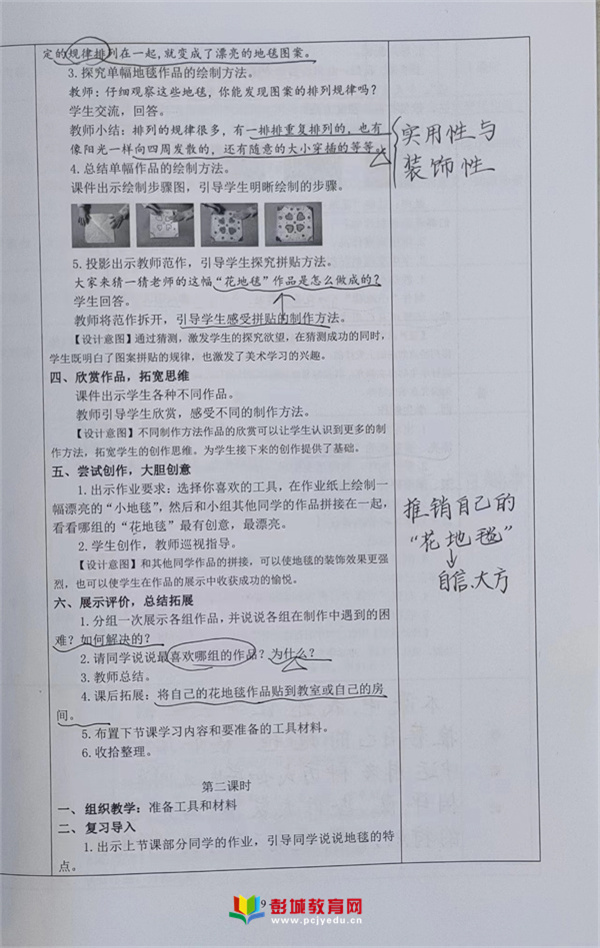 定的规律排列在一起,就变成了漂亮的地毯图案。
3.探究单幅地毯作品的绘制方法。
教师:仔细观察这些地毯,你能发现图案的排列规律吗?
学生交流,回答。
教师小结:排列的规律很多,有一排排重复排列的,也有
像阳光一样向四周发散的,还有随意的大小穿插的等等。
实用性与
装饰性
4.总结单幅作品的绘制方法。
课件出示绘制步骤图,引导学生明晰绘制的步骤。
5.投影出示教师范作,引导学生探究拼贴方法。
大家来猜一猜老师的这幅“花地毯”作品是怎么做成的?
学生回答。
教师将范作拆开,引导学生感受拼贴的制作方法。
【设计意图】通过猜测,激发学生的探究欲望,在猜测成功的同时,
学生既明白了图案拼贴的规律,也激发了美术学习的兴趣。
四、欣赏作品,拓宽思维
课件出示学生各种不同作品。
教师引导学生欣赏,感受不同的制作方法。
【设计意图】不同制作方法作品的欣赏可以让学生认识到更多的制
作方法,拓宽学生的创作思维。为学生接下来的创作提供了基础。
五、尝试创作,大胆创意
1.出示作业要求:选择你喜欢的工具,在作业纸上绘制一
幅漂亮的“小地毯”,然后和小组其他同学的作品拼接在一起,
看看哪组的“花地毯”最有创意,最漂亮。
2.学生创作,教师巡视指导。
【设计意图】和其他同学作品的拼接,可以使地毯的装饰效果更强
烈,也可以使学生在作品的展示中收获成功的愉悦。
推销自己的
“花地毯”
自信、大方
六、展示评价,总结拓展
1.分组一次展示各组作品,并说说各组在制作中遇到的困
难?如何解决的?
2.请同学说说最喜欢哪组的作品?为什么?
3.教师总结。
4.课后拓展:将自己的花地毯作品贴到教室或自己的房
间。
5.布置下节课学习内容和要准备的工具材料。
6.收拾整理。
第二课时
一、组织教学:准备工具和材料
二、复习导入
1.出示上节课部分同学的作业,引导同学说说地毯的特
点。
9
彭城教育网
www.pcjyedu.cn